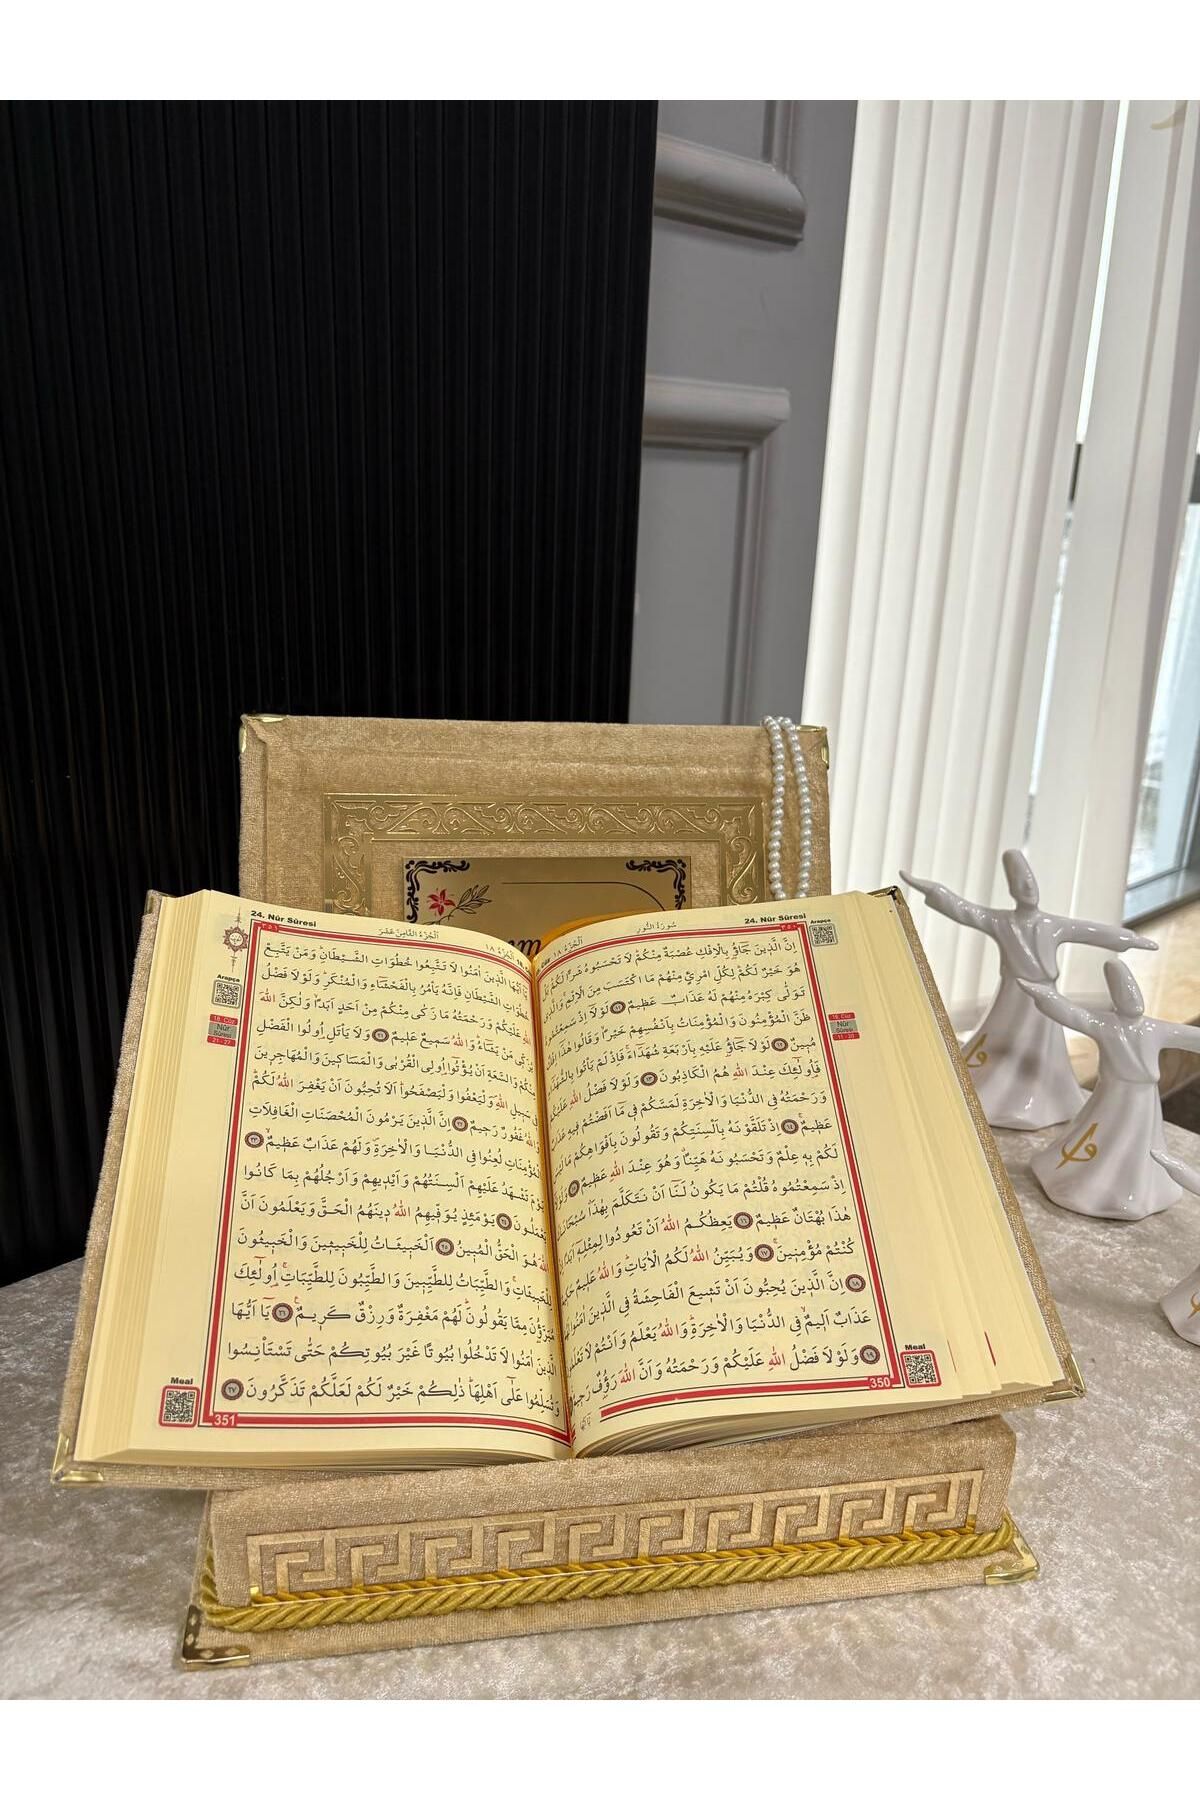 24. Nûr Sûresi
سُورَةُ النُّورِ
اَلْجُزْءُ ١٨
Arapça
اِنَّ الَّذٖينَ جَٓاؤُ۫ بِالْاِفْكِ عُصْبَةٌ مِنْكُمْؕ لَا تَحْسَبُوهُ شَراًّ لَكُمْؕ بَلْ
هُوَ خَيْرٌ لَكُمْؕ لِكُلِّ امْرِئٍ مِنْهُمْ مَا اكْتَسَبَ مِنَ الْاِثْمِۚ وَالَّذٖي
تَوَلّٰى كِبْرَهُ مِنْهُمْ لَهُ عَذَابٌ عَظٖيمٌ ﴿١١﴾ لَوْلَٓا اِذْ سَمِعْتُمُوهُ
ظَنَّ الْمُؤْمِنُونَ وَالْمُؤْمِنَاتُ بِاَنْفُسِهِمْ خَيْراًۙ وَقَالُوا هٰذَٓا اِفْكٌ
مُبٖينٌ ﴿١٢﴾ لَوْلَا جَٓاؤُ۫ عَلَيْهِ بِاَرْبَعَةِ شُهَدَٓاءَۚ فَاِذْ لَمْ يَأْتُوا بِالشُّهَدَٓاءِ
فَاُو۬لٰٓئِكَ عِنْدَ اللّٰهِ هُمُ الْكَاذِبُونَ ﴿١٣﴾ وَلَوْلَا فَضْلُ اللّٰهِ عَلَيْكُمْ
وَرَحْمَتُهُ فِي الدُّنْيَا وَالْاٰخِرَةِ لَمَسَّكُمْ فٖي مَٓا اَفَضْتُمْ فٖيهِ عَذَابٌ
عَظٖيمٌ ﴿١٤﴾ اِذْ تَلَقَّوْنَهُ بِاَلْسِنَتِكُمْ وَتَقُولُونَ بِاَفْوَاهِكُمْ مَا لَيْسَ
لَكُمْ بِهٖ عِلْمٌ وَتَحْسَبُونَهُ هَيِّناًۗ وَهُوَ عِنْدَ اللّٰهِ عَظٖيمٌ ﴿١٥﴾ وَلَوْلَٓا
اِذْ سَمِعْتُمُوهُ قُلْتُمْ مَا يَكُونُ لَنَٓا اَنْ نَتَكَلَّمَ بِهٰذَاۗ سُبْحَانَكَ
هٰذَا بُهْتَانٌ عَظٖيمٌ ﴿١٦﴾ يَعِظُكُمُ اللّٰهُ اَنْ تَعُودُوا لِمِثْلِهٖٓ اَبَداً اِنْ
كُنْتُمْ مُؤْمِنٖينَۚ ﴿١٧﴾ وَيُبَيِّنُ اللّٰهُ لَكُمُ الْاٰيَاتِؕ وَاللّٰهُ عَلٖيمٌ حَكٖيمٌ
﴿١٨﴾ اِنَّ الَّذٖينَ يُحِبُّونَ اَنْ تَشٖيعَ الْفَاحِشَةُ فِي الَّذٖينَ اٰمَنُوا لَهُمْ
عَذَابٌ اَلٖيمٌۙ فِي الدُّنْيَا وَالْاٰخِرَةِؕ وَاللّٰهُ يَعْلَمُ وَاَنْتُمْ لَا تَعْلَمُونَ
﴿١٩﴾ وَلَوْلَا فَضْلُ اللّٰهِ عَلَيْكُمْ وَرَحْمَتُهُ وَاَنَّ اللّٰهَ رَؤُ۫فٌ رَحٖيمٌ
18. Cüz
Nûr
Sûresi
11 - 20
Meal
350
24. Nûr Sûresi
اَلْجُزْءُ الثَّامِنَ عَشَرَ
اَلْجُزْءُ ١٨
٣٥١
يَٓا اَيُّهَا الَّذٖينَ اٰمَنُوا لَا تَتَّبِعُوا خُطُوَاتِ الشَّيْطَانِؕ وَمَنْ يَتَّبِعْ
خُطُوَاتِ الشَّيْطَانِ فَاِنَّهُ يَأْمُرُ بِالْفَحْشَٓاءِ وَالْمُنْكَرِؕ وَلَوْلَا فَضْلُ
اللّٰهِ عَلَيْكُمْ وَرَحْمَتُهُ مَا زَكٰى مِنْكُمْ مِنْ اَحَدٍ اَبَداًۙ وَلٰكِنَّ اللّٰهَ
يُزَكّٖي مَنْ يَشَٓاءُؕ وَاللّٰهُ سَمٖيعٌ عَلٖيمٌ ﴿٢١﴾ وَلَا يَأْتَلِ اُو۬لُوا الْفَضْلِ
مِنْكُمْ وَالسَّعَةِ اَنْ يُؤْتُٓوا اُو۬لِي الْقُرْبٰى وَالْمَسَاكٖينَ وَالْمُهَاجِرٖينَ
فٖي سَبٖيلِ اللّٰهِۖ وَلْيَعْفُوا وَلْيَصْفَحُواؕ اَلَا تُحِبُّونَ اَنْ يَغْفِرَ اللّٰهُ لَكُمْؕ
وَاللّٰهُ غَفُورٌ رَحٖيمٌ ﴿٢٢﴾ اِنَّ الَّذٖينَ يَرْمُونَ الْمُحْصَنَاتِ الْغَافِلَاتِ
الْمُؤْمِنَاتِ لُعِنُوا فِي الدُّنْيَا وَالْاٰخِرَةِۖ وَلَهُمْ عَذَابٌ عَظٖيمٌۙ ﴿٢٣﴾
يَوْمَ تَشْهَدُ عَلَيْهِمْ اَلْسِنَتُهُمْ وَاَيْدٖيهِمْ وَاَرْجُلُهُمْ بِمَا كَانُوا
يَعْمَلُونَ ﴿٢٤﴾ يَوْمَئِذٍ يُوَفّٖيهِمُ اللّٰهُ دٖينَهُمُ الْحَقَّ وَيَعْلَمُونَ اَنَّ
اللّٰهَ هُوَ الْحَقُّ الْمُبٖينُ ﴿٢٥﴾ اَلْخَبٖيثَاتُ لِلْخَبٖيثٖينَ وَالْخَبٖيثُونَ
لِلْخَبٖيثَاتِۚ وَالطَّيِّبَاتُ لِلطَّيِّبٖينَ وَالطَّيِّبُونَ لِلطَّيِّبَاتِۚ اُو۬لٰٓئِكَ
مُبَرَّؤُ۫نَ مِمَّا يَقُولُونَؕ لَهُمْ مَغْفِرَةٌ وَرِزْقٌ كَرٖيمٌ۟ ﴿٢٦﴾ يَٓا اَيُّهَا
الَّذٖينَ اٰمَنُوا لَا تَدْخُلُوا بُيُوتاً غَيْرَ بُيُوتِكُمْ حَتّٰى تَسْتَأْنِسُوا
وَتُسَلِّمُوا عَلٰٓى اَهْلِهَاؕ ذٰلِكُمْ خَيْرٌ لَكُمْ لَعَلَّكُمْ تَذَكَّرُونَ ﴿٢٧﴾
Arapça
18. Cüz
Nûr
Sûresi
21 - 27
Meal
351